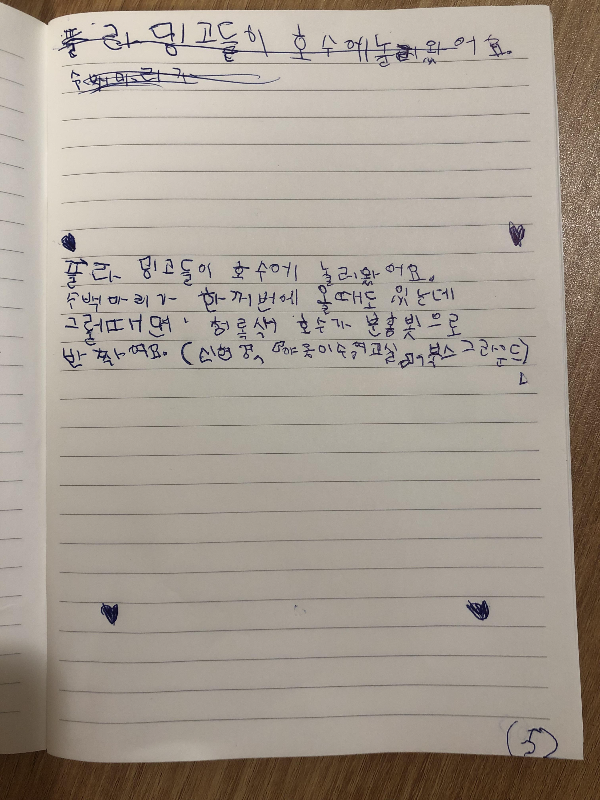 플라밍고들이 호수에 놀러왔어요.
수백마리가
플라밍고들이 호수에 놀러왔어요.
수백마리가 한꺼번에 올때도 있는데
그럴때면 청록색 호수가 분홍빛으로
반짝여요. (신현경, 야옹이수영교실, 북스그라운드)
(5)